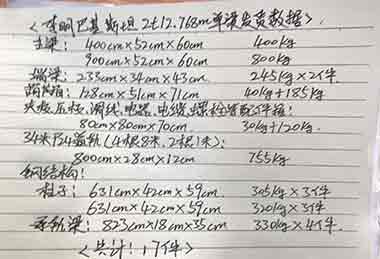 <李明巴基斯坦2t12.768m单梁发货数据>
主梁: 400cm×52cm×60cm 400kg
900cm×52cm×60cm 800kg
端梁: 235cm×34cm×43cm 245kg×2件
葫芦箱: 128cm×51cm×71cm 40kg+185kg
夹板,压板,滑线,电器,电缆,螺栓等配件箱:
80cm×80cm×70cm 30kg+120kg
34米P24轨(4根8米,2根1米):
800cm×28cm×12cm 755kg
钢结构:
柱子: 631cm×42cm×59cm 305kg×3件
631cm×42cm×59cm 320kg×3件
承轨梁: 823cm×18cm×35cm 330kg×4件
<共计: 17件>